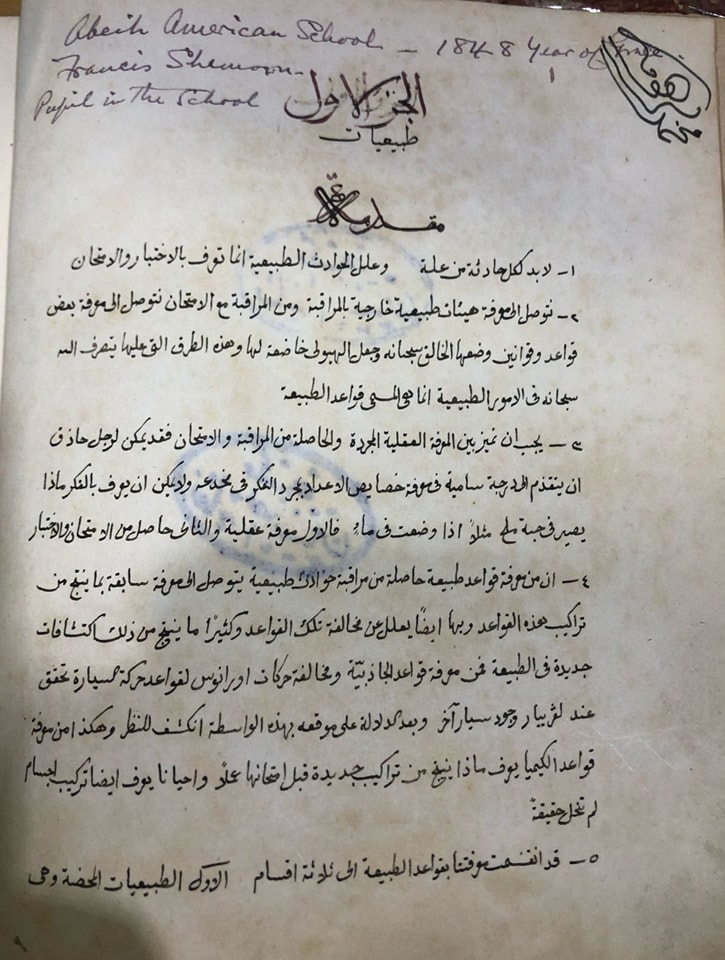 Abeih American School - 1848 Year of Grace
Francis Shemoon
Pupil in the School
الجزء الاول
طبيعيات
مقدمة
١- لا بد لكل حادثة من علة وعلل الحوادث الطبيعية انما تعرف بالاختبار والامتحان
٢- نتوصل الى معرفة هيئات طبيعية خارجية بالمراقبة ومن المراقبة مع الامتحان نتوصل الى معرفة بعض
قواعد وقوانين وضعها الخالق سبحانه وجعل الهيولى خاضعة لها وهذه الطرق التي عليها يتصرف الله
سبحانه في الامور الطبيعية انما هي المسمى قواعد الطبيعة
٣- يجب ان نميز بين المعرفة العقلية المجردة والحاصلة من المراقبة والامتحان فقد يمكن لرجل حاذق
ان يتقدم الى درجة سامية في معرفة خصايص الاعداد بمجرد الفكر في مخدعه ولا يمكن ان يعرف بالفكر ماذا
يصير في حبة ملح مثلاً اذا وضعت في ماء فالاول معرفة عقلية والثاني حاصل من الامتحان والاختبار
٤- ان من معرفة قواعد طبيعة حاصلة من مراقبة حوادث طبيعية يتوصل الى معرفة سابقة بما ينتج من
تراكيب هذه القواعد وبها ايضًا يعلل عن مخالفة تلك القواعد وكثيرًا ما ينتج من ذلك اكتشافات
جديدة في الطبيعة فمن معرفة قواعد الجاذبيّة ومخالفة حركات اورانوس لقواعد حركة السيارة تحقق
عند لڤريار وجود سيار آخر وبعد الدلالة على موقعه بهذه الواسطة انكشف للنظر وهكذا من معرفة
قواعد الكيميا يعرف ماذا ينتج من تراكيب جديدة قبل امتحانها عملاً واحيانا يعرف ايضا تركيب اجسام
لم تنحل حقيقةً
٥- قد انقسمت معرفتنا بقواعد الطبيعة الى ثلاثة اقسام الاول الطبيعيات المحضة وهي